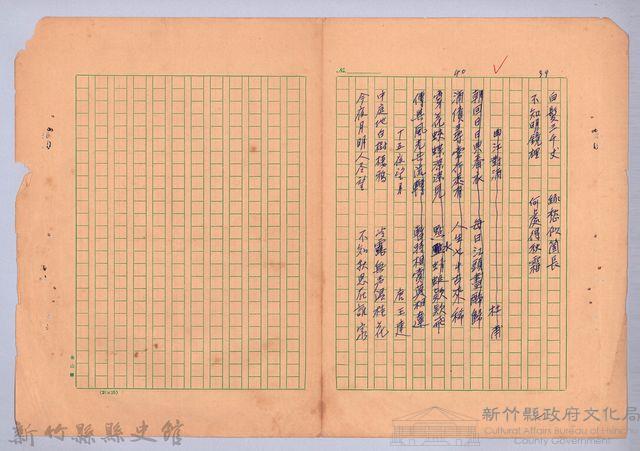 39
白髮三千丈　緣愁似箇長
不知明鏡裡　何處得秋霜
40
曲江對酒　杜甫
朝回日日典春衣　每日江頭盡醉歸
酒債尋常行處有　人生七十古來稀
穿花蛺蝶深深見　點水蜻蜓款款飛
傳與風光共流轉　暫時相賞莫相違
十五夜望月　唐王建
中庭地白樹棲鴉　冷露無聲濕桂花
今夜月明人尽望　不知秋思在誰家
No.
(25×20)
新竹縣縣史館
新竹縣政府文化局
Cultural Affairs Bureau of Hsinchu
County Government